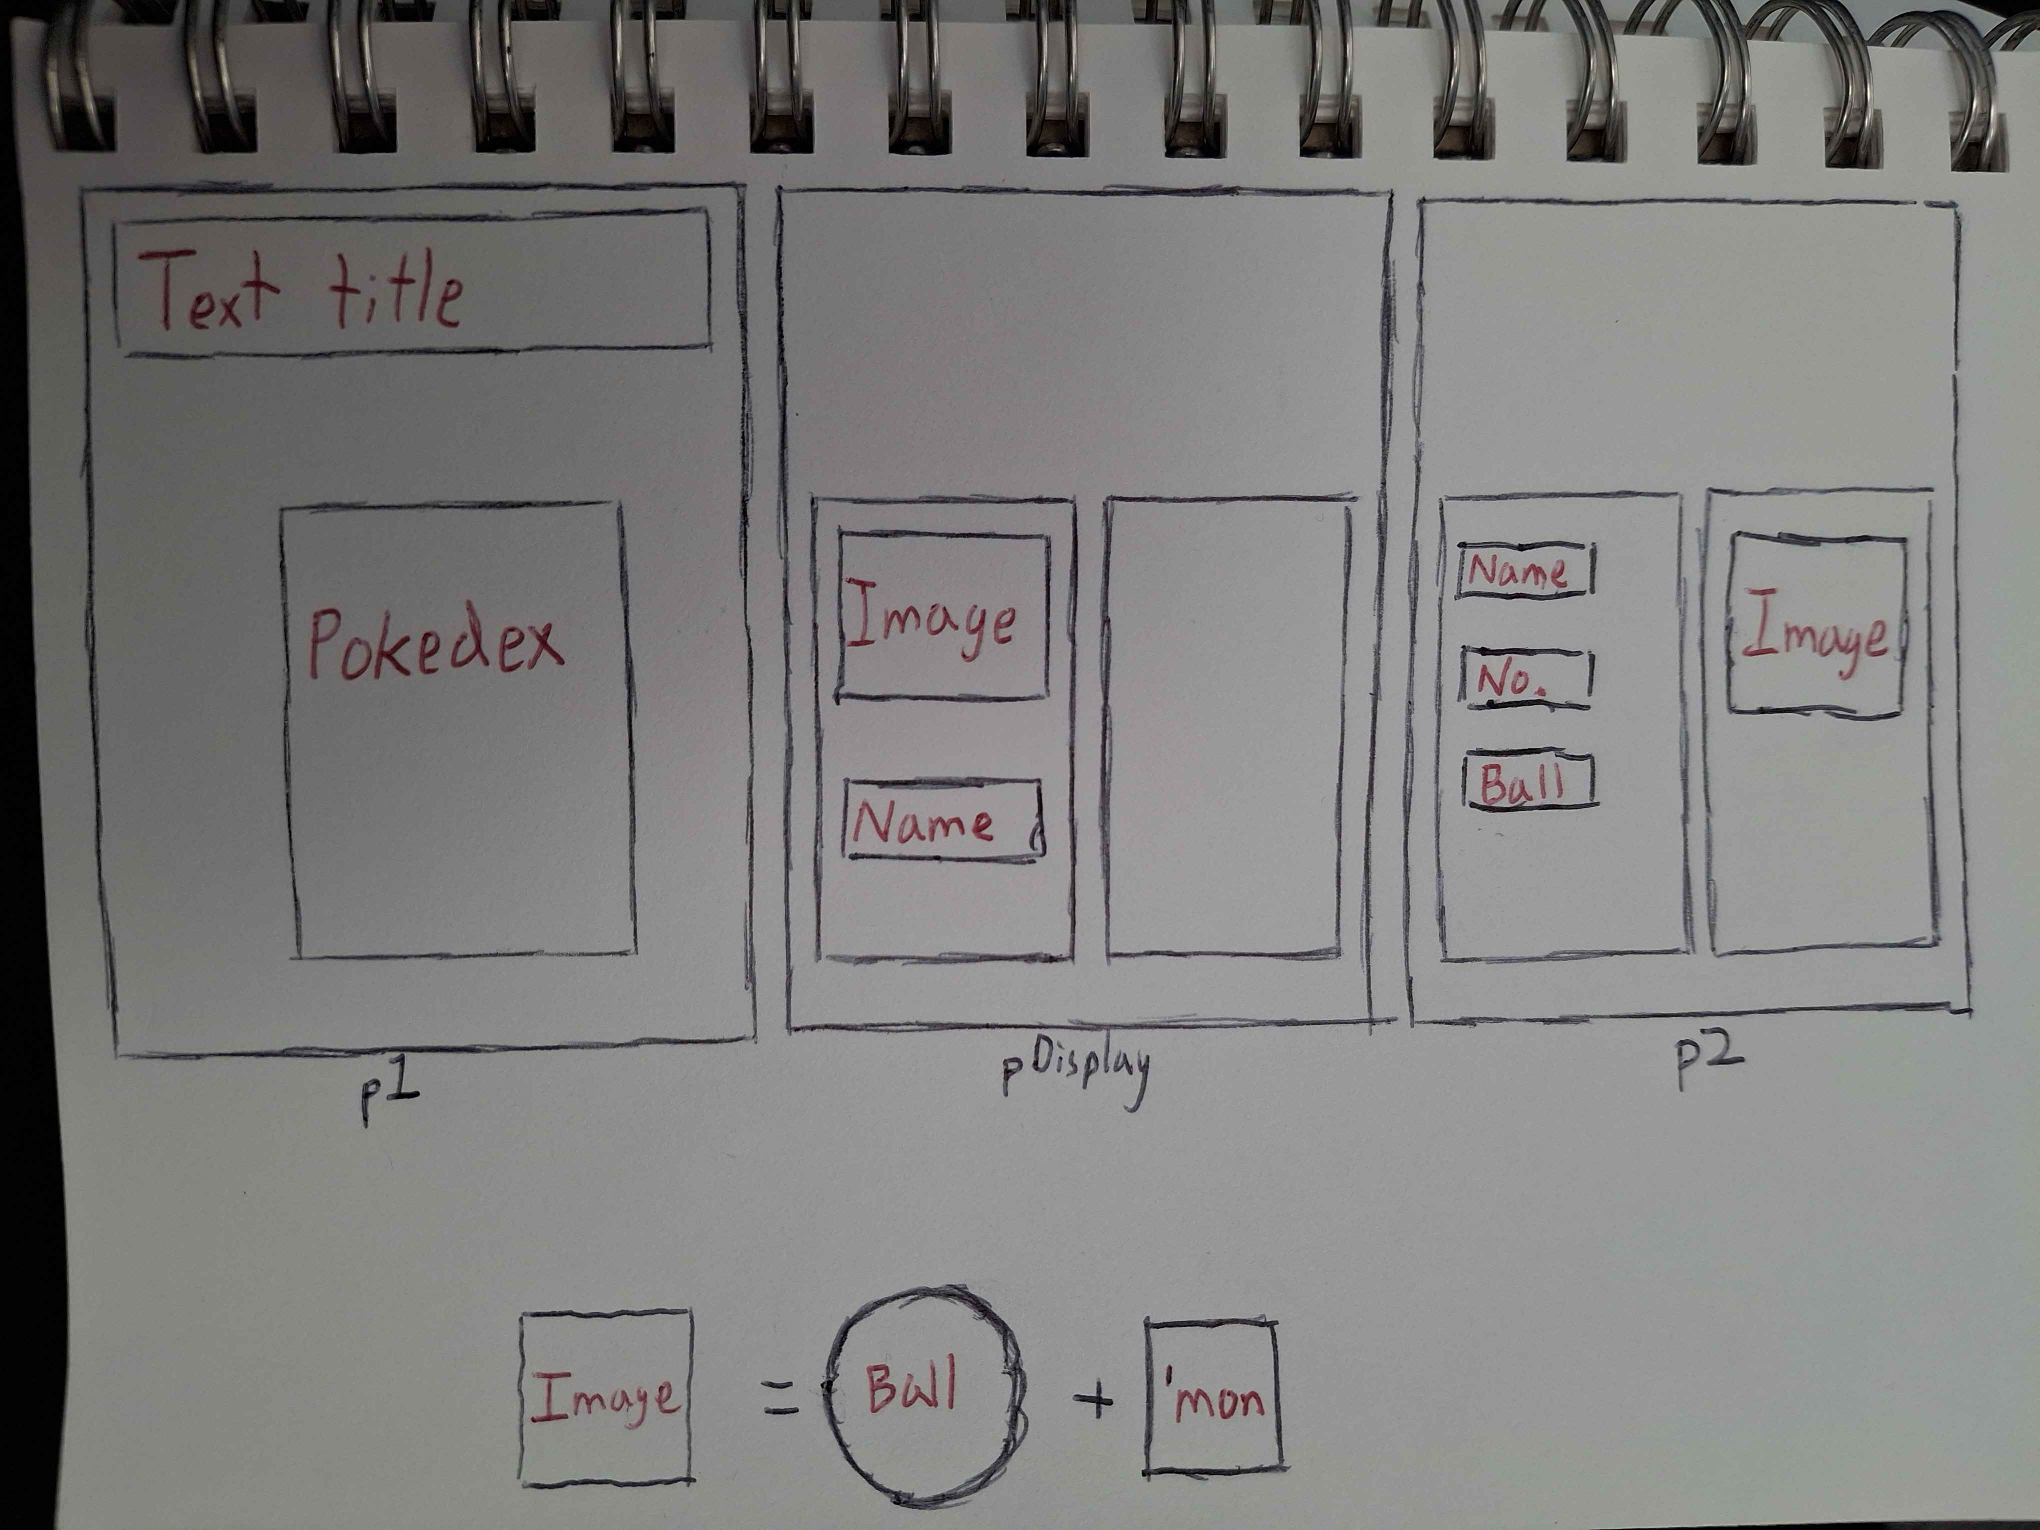 Text title
Pokedex
p1
Image
Name
pDisplay
Name
No.
Ball
Image
p2
Image = Ball + 'mon